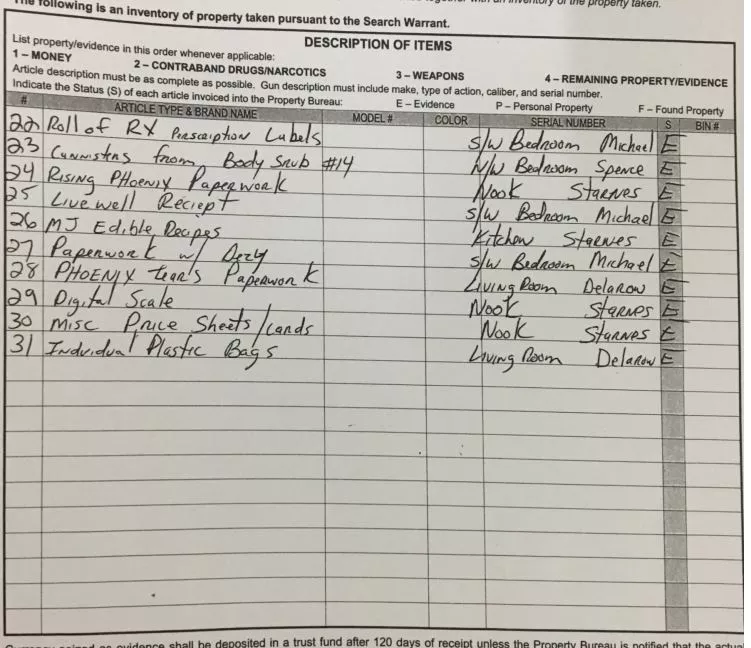 The following is an inventory of property taken pursuant to the Search Warrant.
an inventory of the property taken.
DESCRIPTION OF ITEMS
List property/evidence in this order whenever applicable:
1 – MONEY 2 – CONTRABAND DRUGS/NARCOTICS 3 – WEAPONS 4 – REMAINING PROPERTY/EVIDENCE
Article description must be as complete as possible. Gun description must include make, type of action, caliber, and serial number.
Indicate the Status (S) of each article invoiced into the Property Bureau: E – Evidence P – Personal Property F – Found Property
# ARTICLE TYPE & BRAND NAME MODEL # COLOR SERIAL NUMBER S BIN #
22 Roll of RX Perscription Labels S/W Bedroom Michael E
23 Cannisters from Body Snub #14 N/W Bedroom Spence E
24 Rising PHoenix Paperwork Nook Starnes E
25 Livewell Reciept S/W Bedroom Michael E
26 MJ Edible Recipes Kitchen Starnes E
27 Paperwork w/ S/W Bedroom Michael E
28 PHOENIX tear's Paperwork Living Room Delarow E
29 Digital Scale Nook Starnes E
30 Misc Price Sheets/cards Nook Starnes E
31 Individual Plastic Bags Living Room Delarow E
evidence shall be deposited in a trust fund after 120 days of receipt unless the Property Bureau is notified that the actual